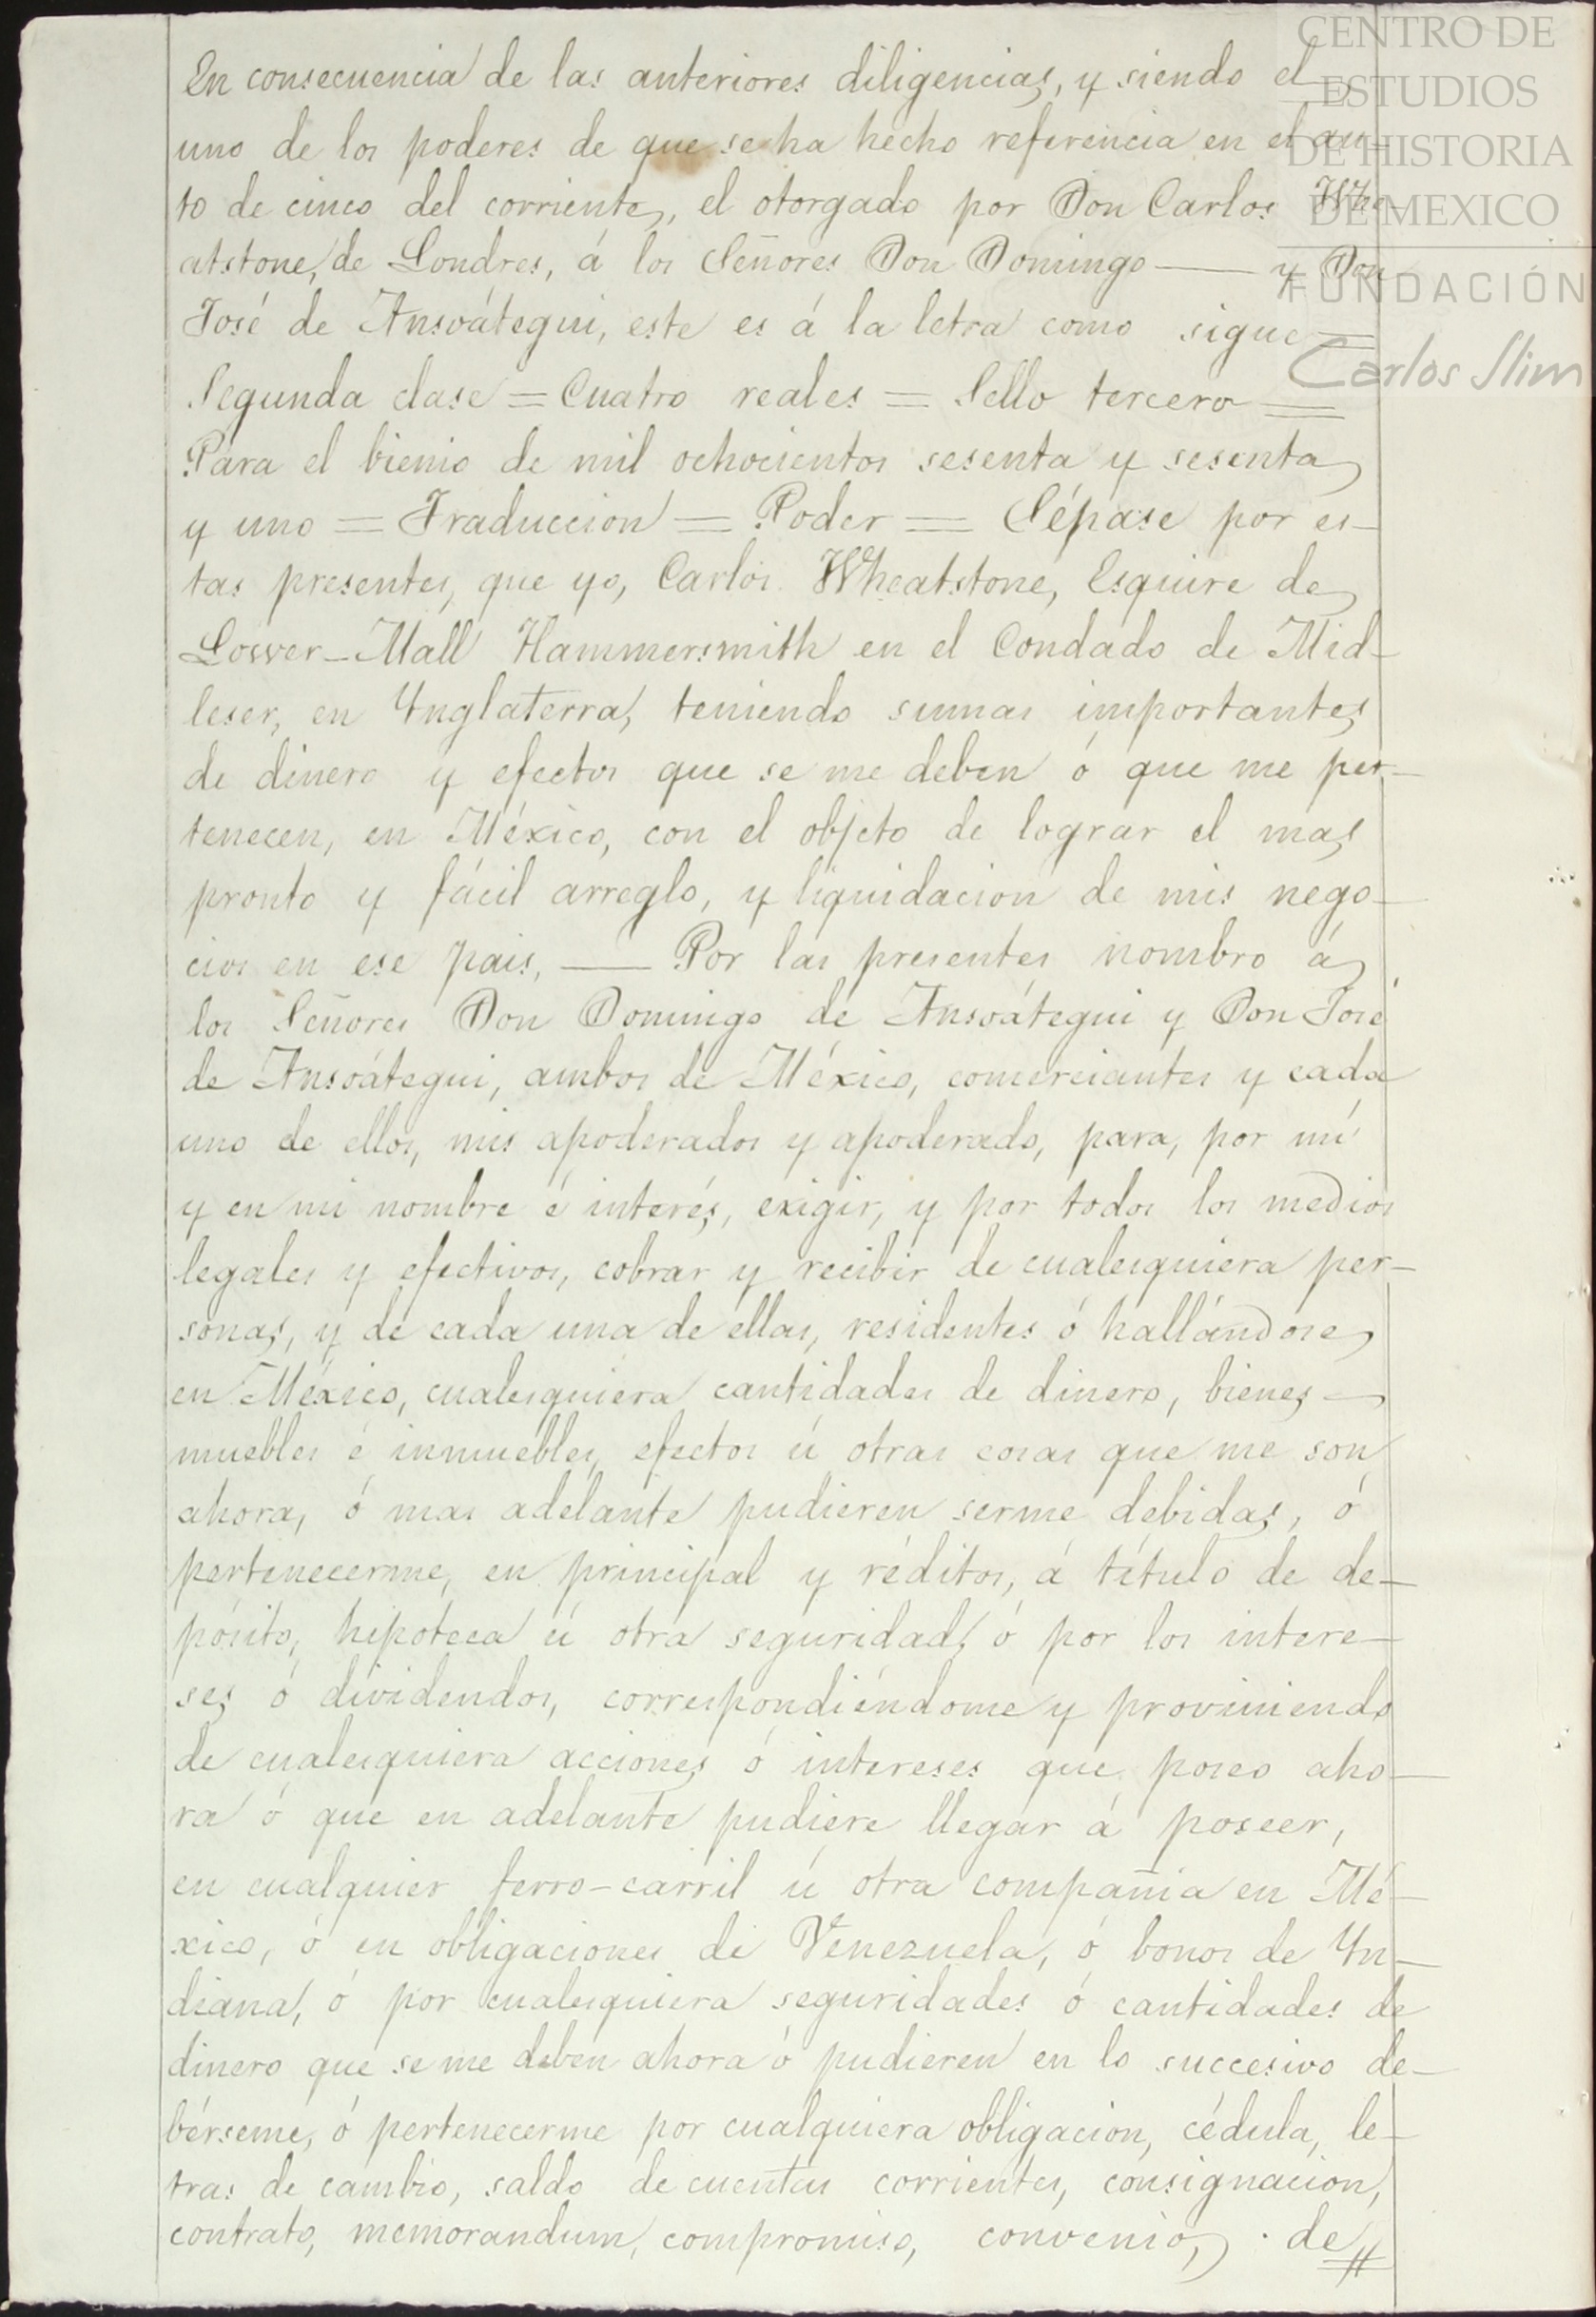 CENTRO DE
ESTUDIOS
DE HISTORIA
DE MEXICO
FUNDACIÓN
Carlos Slim
En consecuencia de las anteriores diligencias, y siendo el
uno de los poderes de que se ha hecho referencia en el au-
to de cinco del corriente, el otorgado por Don Carlos Whe
atstone, de Londres, á los Señores Don Domingo — y Don
José de Ansoátegui, este es á la letra como sigue =
Segunda clase = Cuatro reales = Sello tercero =
Para el bienio de mil ochocientos sesenta y sesenta
y uno = Traduccion = Poder = Sépase por es-
tas presentes, que yo, Carlos Wheatstone, Esquire de
Lower-Mall Hammersmith en el Condado de Mid-
leser, en Ynglaterra, teniendo sumas importantes
de dinero y efectos que se me deben ó que me per-
tenecen, en México, con el objeto de lograr el mas
pronto y fácil arreglo, y liquidacion de mis nego-
cios en ese pais, — Por las presentes nombro á
los Señores Don Domingo de Ansoátegui y Don José
de Ansoátegui, ambos de México, comerciantes y cada
uno de ellos, mis apoderados y apoderado, para, por mí
y en mi nombre é interés, exigir, y por todos los medios
legales y efectivos, cobrar y recibir de cualesquiera per-
sonas, y de cada una de ellas, residentes ó hallándose
en México, cualesquiera cantidades de dinero, bienes —
muebles é inmuebles, efectos ú otras cosas que me son
ahora, ó mas adelante pudieren serme debidas, ó
pertenecerme, en principal y réditos, á título de de-
pósito, hipoteca ú otra seguridad, ó por los intere-
ses ó dividendos, correspondiéndome y proviniendo
de cualesquiera acciones ó intereses que poseo aho-
ra ó que en adelante pudiere llegar á poseer,
en cualquier ferro-carril ú otra compañia en Mé-
xico, ó en obligaciones de Venezuela, ó bonos de Yn-
diana, ó por cualesquiera seguridades ó cantidades de
dinero que se me deben ahora ó pudieren en lo succesivo de-
bérseme, ó pertenecerme por cualquiera obligacion, cédula, le-
tras de cambio, saldo de cuentas corrientes, consignacion,
contrato, memorandum, compromiso, convenio, de